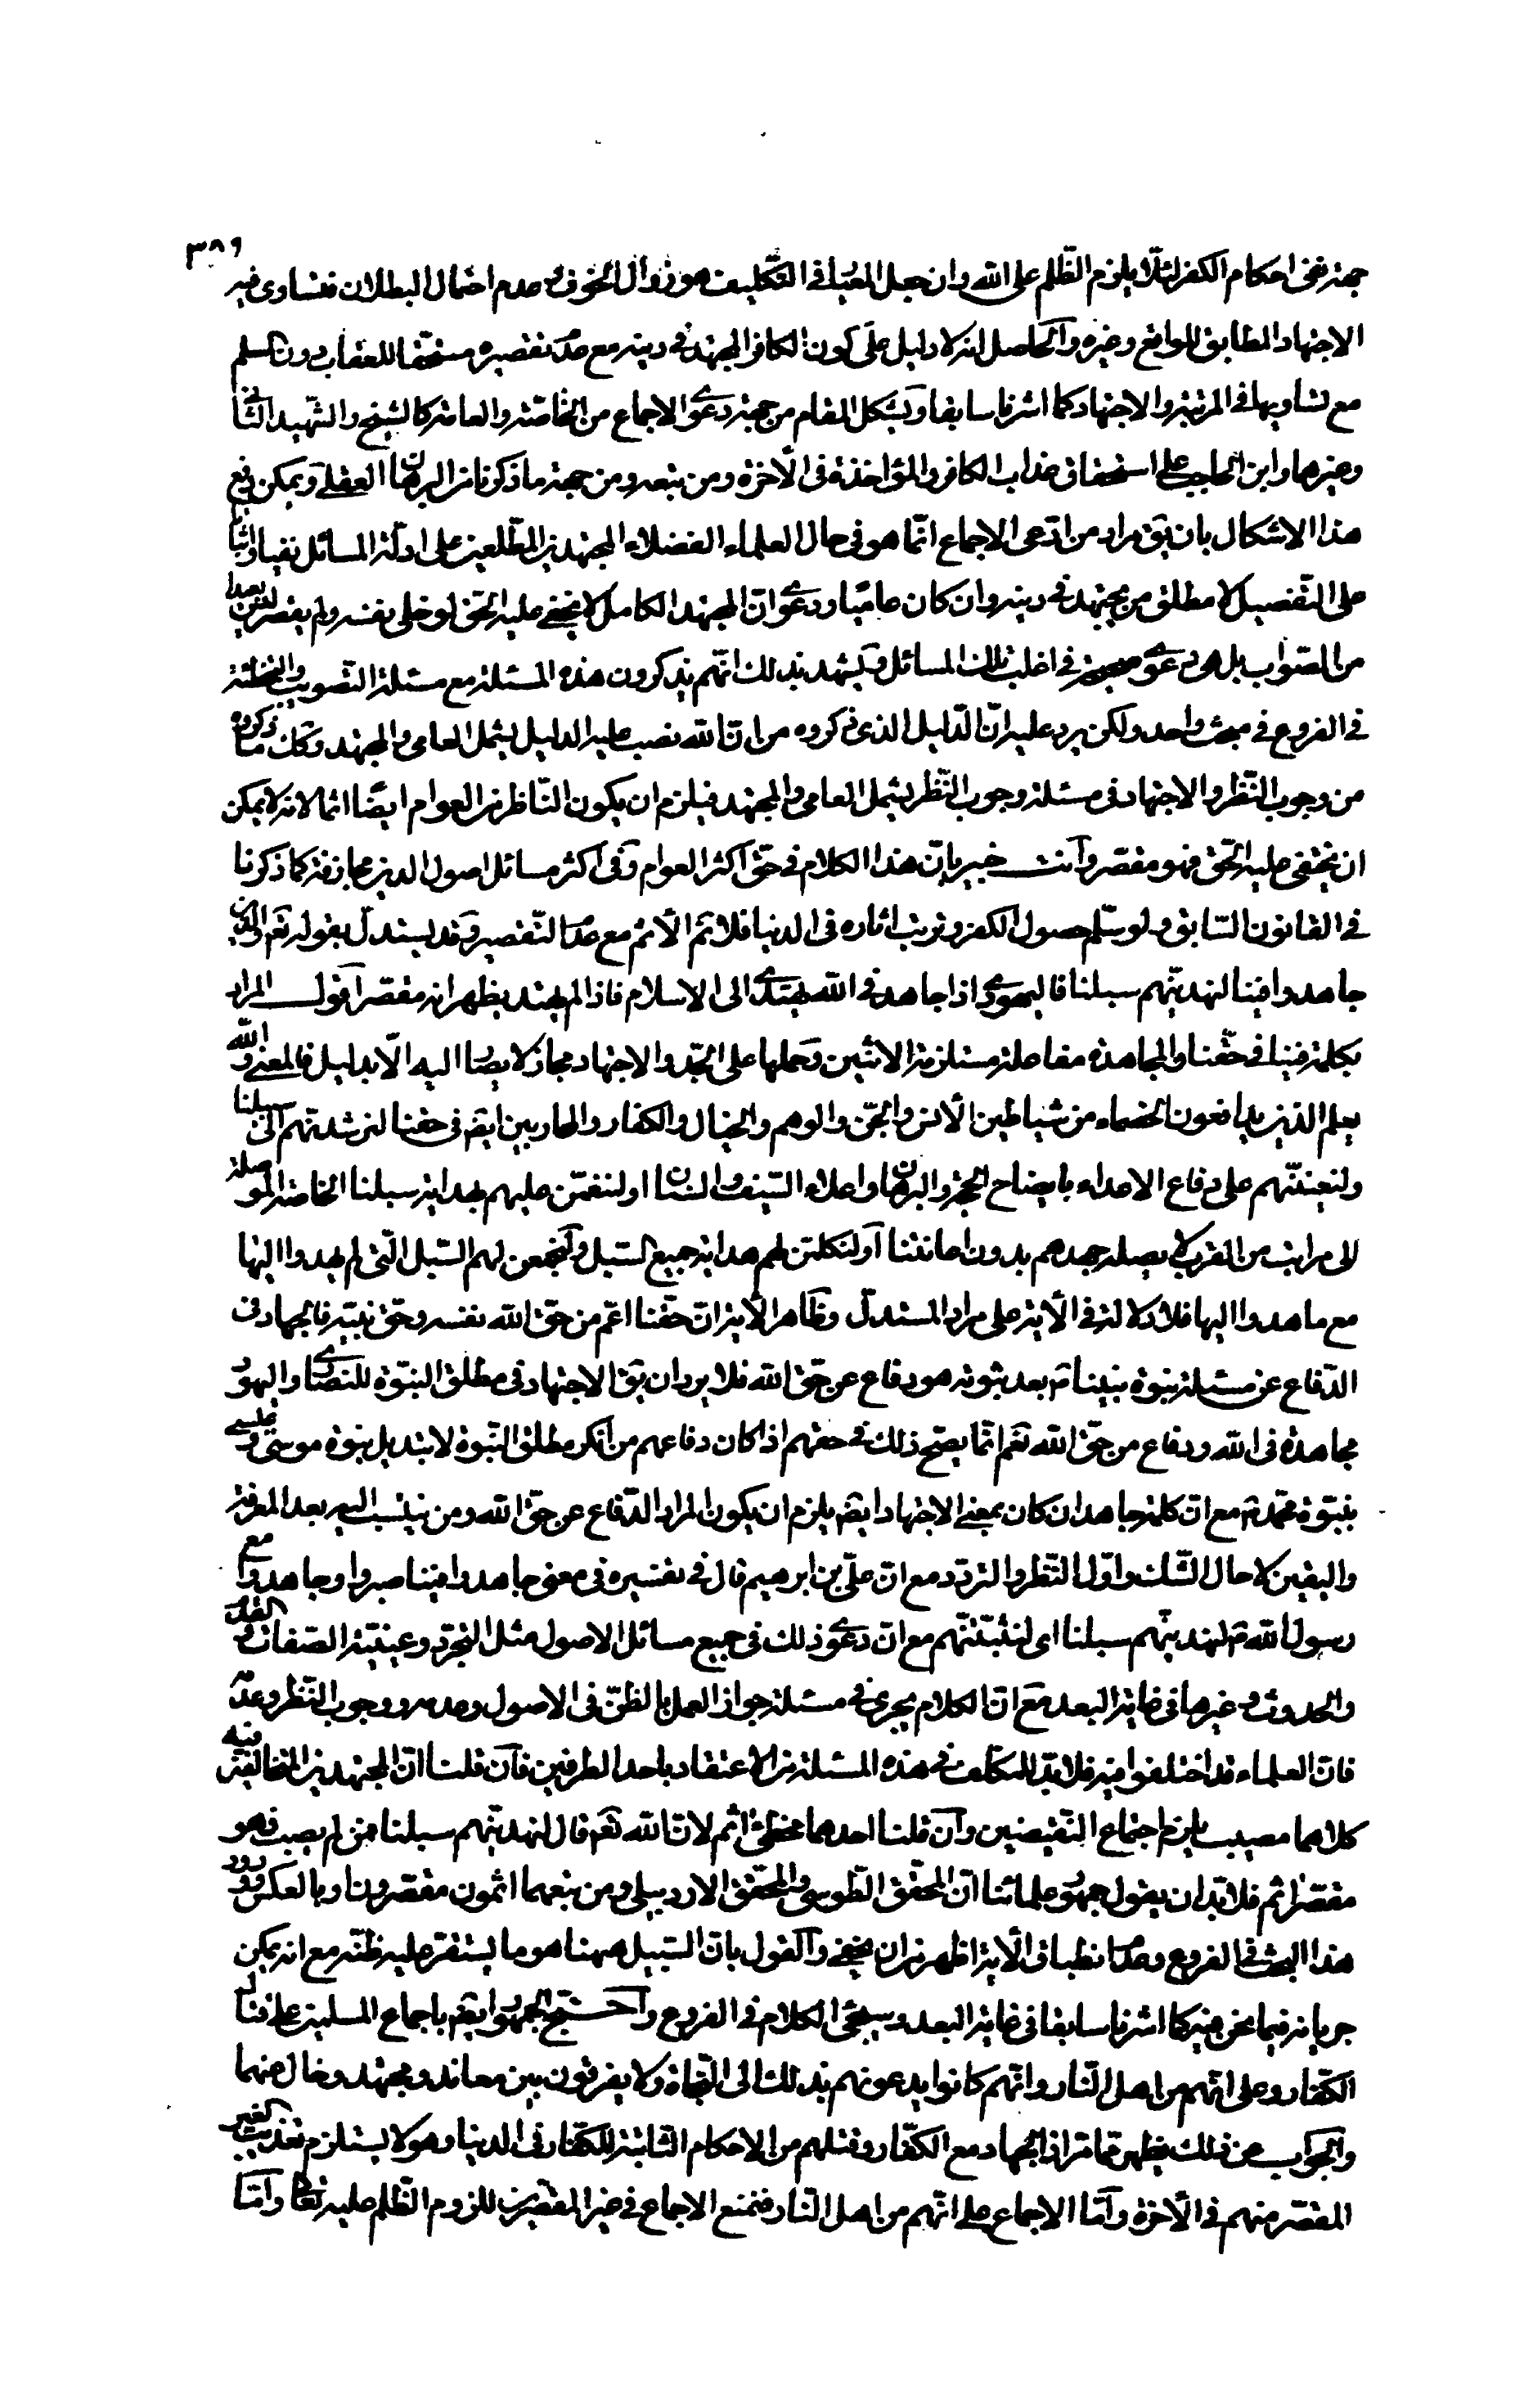 ٣٨٩
جهة نفى احكام الكفر لئلّا يلزم الظّلم على الله وان جعل المعيار فى التكليف هو زوال الخوف و عدم احتمال البطلان فتساوى فيه
الاجتهاد المطابق للواقع وغيره والحاصل انه لا دليل على كون الكافر المجتهد فى دينه مع عدم تقصيره مستحقا للعقاب دون المسلم
مع تساويهما فى المرتبة والاجتهاد كما اشرنا سابقا ويشكل المقام من جهة دعوى الاجماع من الخاصّة والعامة كالشيخ والشّهيد الثانى
وغيرهما وابن الحاجب على استحقاق عذاب الكافر والمؤاخذة فى الآخرة ومن تبعه ومن جهة ما ذكرنا من البرهان العقلى ويمكن دفع
هذا الاشكال بان يق مراد من ادّعى الاجماع انّما هو فى حال العلماء الفضلاء المجتهدين المطّلعين على ادلّة المسائل نفيا واثباتا
على التّفصيل لا مطلق من يجتهد فى دينه وان كان عاميّا ودعوى انّ المجتهد الكامل لا يخفى عليه الحق لو خلى نفسه ولم يقصر ليس ببعيد
من الصّواب بل هى دعوى صحيحة فى اغلب تلك المسائل ويشهد بذلك انّهم يذكرون هذه المسئلة مع مسئلة التّصويب والتخطئة
فى الفروع فى مبحث واحد ولكن يرد عليه انّ الدّليل الذى ذكروه من انّ الله نصب عليه الدليل يشمل العامى والمجتهد وكك ما ذكروه
من وجوب النّظر والاجتهاد فى مسئلة وجوب النّظر يشمل العامى والمجتهد فيلزم ان يكون النّاظر من العوام ايضًا اثما لانه لا يمكن
ان يخفى عليه الحق فهو مقصّر وانت خبير بانّ هذا الكلام فى حقّ اكثر العوام وفى اكثر مسائل اصول الدين مجازفة كما ذكرنا
فى القانون السّابق ولو سلّم حصول الكفر وترتب اثاره فى الدنيا فلا يتم الأثم مع عدم التّقصير وقد يستدلّ بقوله تعم والذين
جاهدوا فينا لنهدينّهم سبلنا فاليهودى اذا جاهد فى الله يهتدى الى الاسلام فاذا لم يهتد يظهر انه مقصّر اقول المراد
بكلمة فينا فى حقّنا والمجاهدة مفاعلة مستلزمة الاثنين وحملها على الجّد والاجتهاد مجاز لا يصار اليه الّا بدليل فالمعنى والله
يعلم الذين يدافعون الخصماء من شياطين الأنس والجّن والوهم والخيال والكفار والمحاربين ايقم فى حقنا لنرشدنهم الى سبلنا
ولنعيننّهم على دفاع الاعداء بايضاح الحجّة والبرهان واعلاء السّيف والسنان او لنفتحن عليهم هداية سبلنا الخاصّة الموصلة
الى مراتب من القرب لا يصله جهدهم بدون اعانتنا او لنكلتن لهم هداية جميع السّبل ولنجمعن لهم السّبل الّتى لم يهدوا اليها
مع ما هدوا اليها فلا دلالة فى الأية على مراد المستدلّ وظاهر الأية انّ حقّنا اعّم من حقّ الله نفسه وحقّ نبيّه فالجهاد فى
الدّفاع عن مسئلة نبوة نبيّنا ص بعد ثبوته هو دفاع عن حقّ الله فلا يرد ان يق الاجتهاد فى مطلق النبّوة للنّصارى واليهود
مجاهدة فى الله ودفاع من حقّ الله نعم انّما يصحّ ذلك فى حقهم اذا كان دفاعهم من انكر مطلق النّبوة لا تبديل نبوة موسى وعيسى
بنبوّة محمّد ص مع انّ كلمة جاهد ان كان بمعنى الاجتهاد ايقم يلزم ان يكون المراد الدّفاع عن حقّ الله ومن ينتسب اليه بعد المعرفة
واليقين لا حال الشّك واوّل النّظر والتّردّد مع انّ علّى بن ابرهيم قال فى تفسيره فى معنى جاهدوا فينا صبروا وجاهدوا مع
رسول الله ص لنهدينّهم سبلنا اى لنثبتنّهم مع انّ دعوى ذلك فى جميع مسائل الاصول مثل التجرّد وعينيّة الصّفات والقدم
والحدوث و غيرها فى غاية البعد مع انّ الكلام يجرى فى مسئلة جواز العمل بالظنّ فى الاصول وعدمه ووجوب النّظر وعدمه
فانّ العلماء قد اختلفوا فيه فلابدّ للمكلّف فى هذه المسئلة من الاعتقاد باحد الطرفين فان قلت انّ المجتهدين المتخالفين فيه
كلاهما مصيب يلزم اجتماع النّقيضين وان قلنا احدهما مخطئ اثم لانّ الله تعم قال لنهدينّهم سبلنا فمن لم يصب فهو
مقصّر اثم فلابّد ان يقول جمهور علمائنا انّ المحقّق الطّوسى والمحقّق الاردبيلى ومن تبعهما اثمون مقصّرون او بالعكس وورود
هذا البحث فى الفروع وعدم انطباق الأية اظهر من ان يخفى والقول بانّ السّبيل ههنا هو ما يستقرّ عليه ظنّه مع انه يمكن
جريانه فيما نحن فيه كما اشرنا سابقا فى غاية البعد وسيجئ الكلام فى الفروع واحتّج الجمهور ايقم باجماع المسلمين على قتال
الكفّار وعلى انّهم من اهل النّار وانّهم كانوا يدعونهم بذلك الى النّجاة ولا يفرقون بين معاند و مجتهد وخال عنهما
والجواب عن ذلك يظهر ممّا مرّ اذ الجهاد مع الكفّار وقتلهم من الاحكام الثّابتة للكفّار فى الدنيا وهو لا يستلزم تعذيب الغير
المقصّر منهم فى الأخرة وامّا الاجماع على انّهم من اهل النّار فنمنع الاجماع فى غير المقصّرين للزوم الظّلم عليه تعالى وامّا